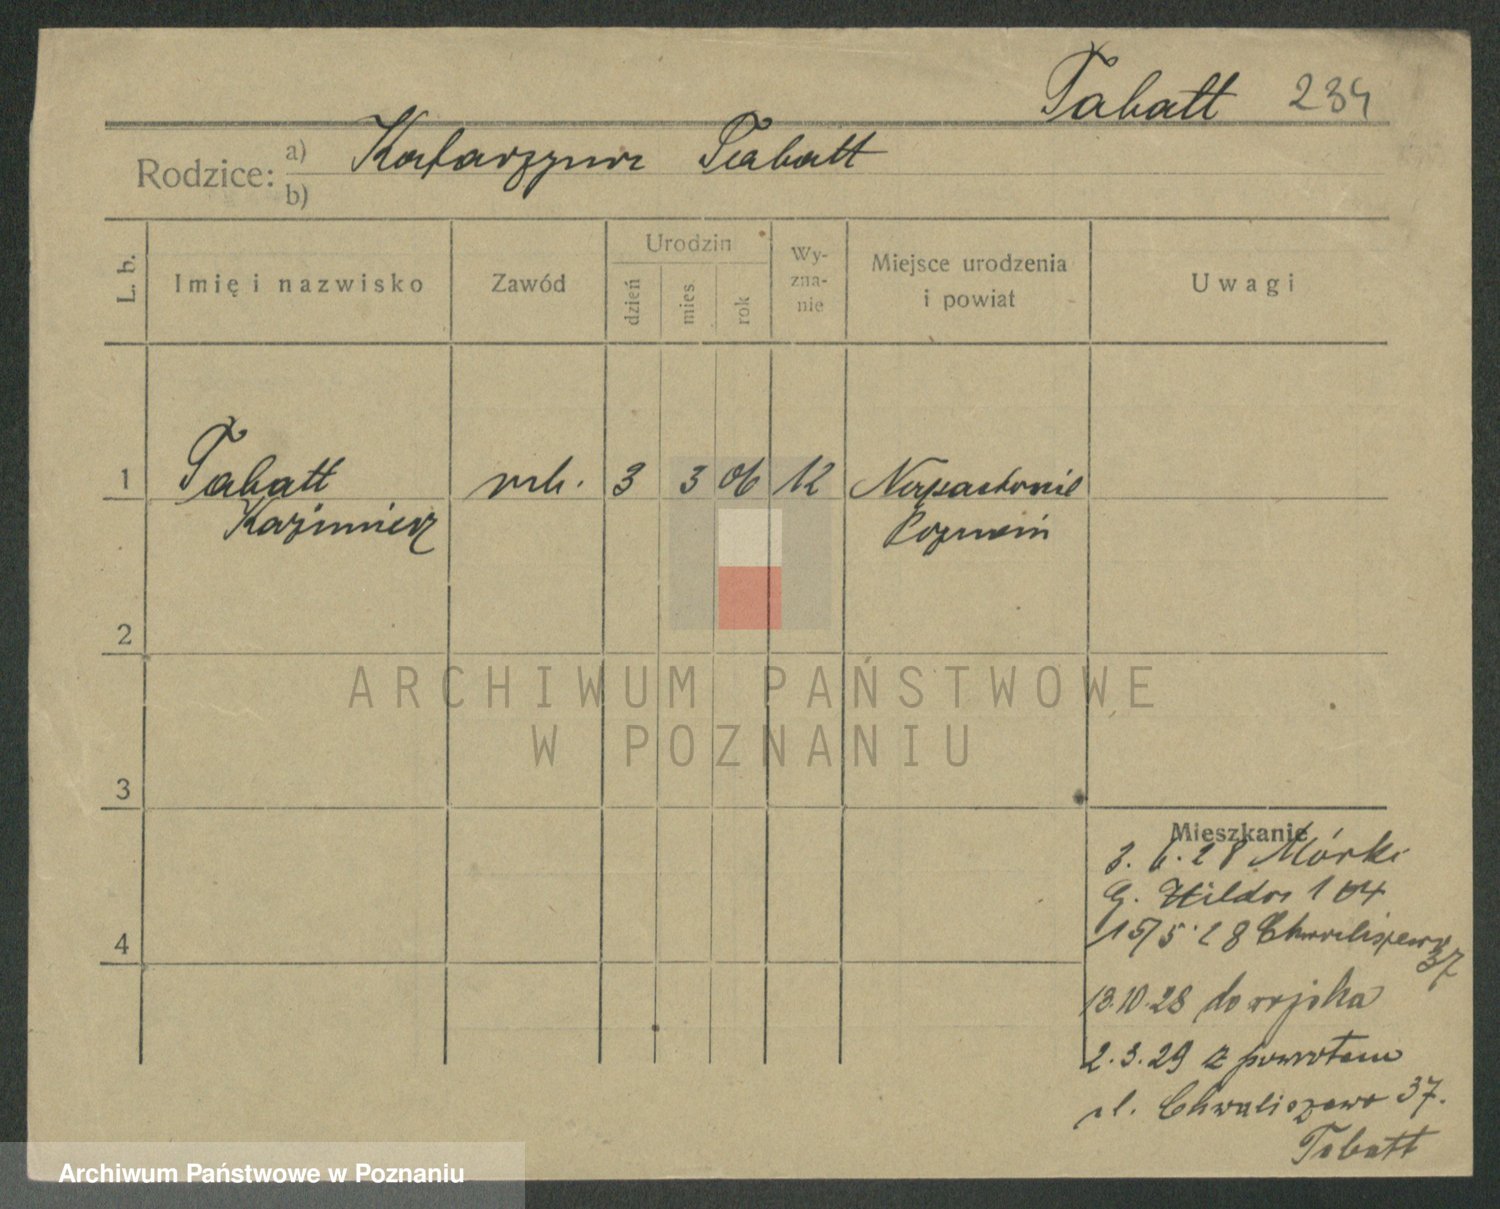 Tabatt 234
Rodzice: a) Katarzyna Tabatt
b)
L. b. Imię i nazwisko Zawód Urodzin dzień mies rok Wy-zna-nie Miejsce urodzenia i powiat Uwagi
1 Tabatt rob. 3 3 06 K
Kazimierz Poznań
2
ARCHIWUM PAŃSTWOWE
W POZNANIU
3
Mieszkanie
3. 6. 28 Mórki
G. Wilda 104
15/5 28 Chwaliszewo
37
4
13.10.28 do wojska
2.3.29 z powrotem
ul. Chwaliszewo 37.
Tabatt
Archiwum Państwowe w Poznaniu